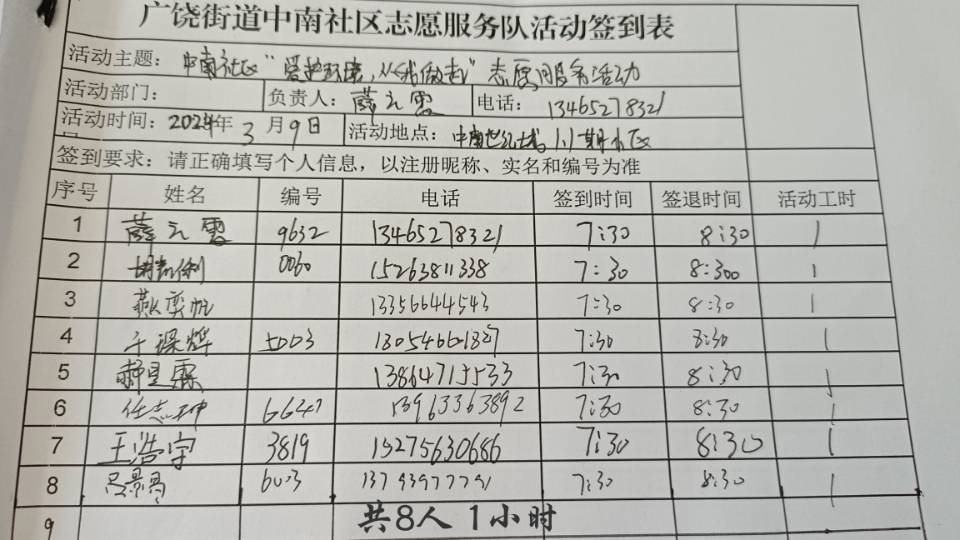 广饶街道中南社区志愿服务队活动签到表
活动主题：中南社区“爱护环境，从我做起”志愿服务活动
活动部门： 负责人：薛元雲 电话：13465278321
活动时间：2024年3月9日 活动地点：中南世纪城1.1期小区
签到要求：请正确填写个人信息，以注册昵称、实名和编号为准
序号 姓名 编号 电话 签到时间 签退时间 活动工时
1 薛元雲 9632 13465278321 7:30 8:30 1
2 0060 15263811338 7:30 8:300 1
3 13356644543 7:30 8:30 1
4 5003 7:30 8:30 1
5 13864715533 7:30 8:30 1
6 任志坤 6647 13963363892 7:30 8:30 1
7 王浩宇 3819 15275630686 7:30 8:30 1
8 吕景昌 7:30 8:30 1
9 共8人 1小时